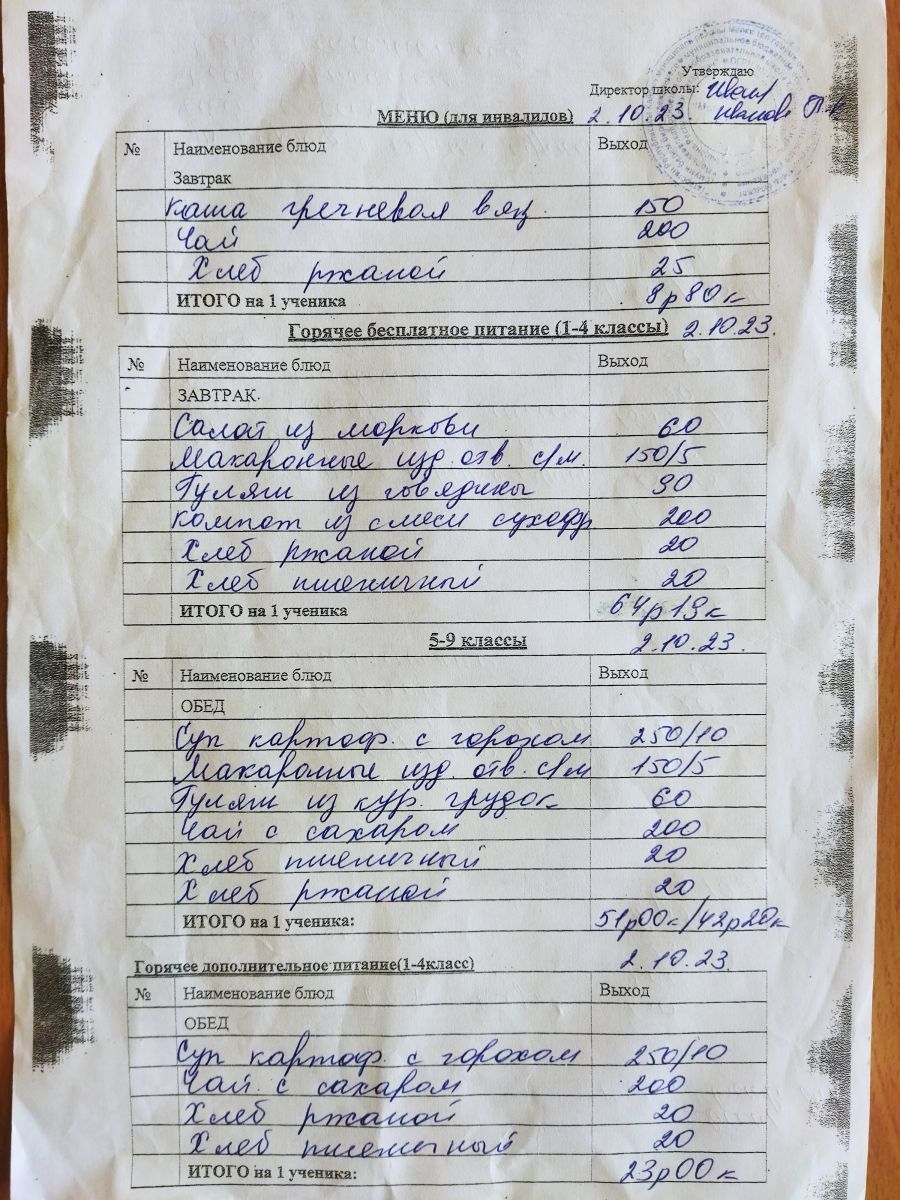 Утверждаю
Директор школы:
МЕНЮ (для инвалидов) 2.10.23.
№ Наименование блюд Выход
Завтрак
Каша гречневая вяз. 150
Чай 200
Хлеб ржаной 25
ИТОГО на 1 ученика 8р80к
Горячее бесплатное питание (1-4 классы) 2.10.23.
№ Наименование блюд Выход
ЗАВТРАК.
Салат из моркови 60
Макаронные изд. отв. с/м. 150/5
Гуляш из говядины 90
Компот из смеси сухофр 200
Хлеб ржаной 20
Хлеб пшеничный 20
ИТОГО на 1 ученика 64р19к
5-9 классы 2.10.23.
№ Наименование блюд Выход
ОБЕД
Суп картоф. с горохом 250/10
Макаронные изд. отв. с/м 150/5
Гуляш из кур. грудок 60
Чай с сахаром 200
Хлеб пшеничный 20
Хлеб ржаной 20
ИТОГО на 1 ученика: 51р00к/42р20к
Горячее дополнительное питание(1-4класс) 2.10.23.
№ Наименование блюд Выход
ОБЕД
Суп картоф. с горохом 250/10
Чай с сахаром 200
Хлеб ржаной 20
Хлеб пшеничный 20
ИТОГО на 1 ученика: 23р00к